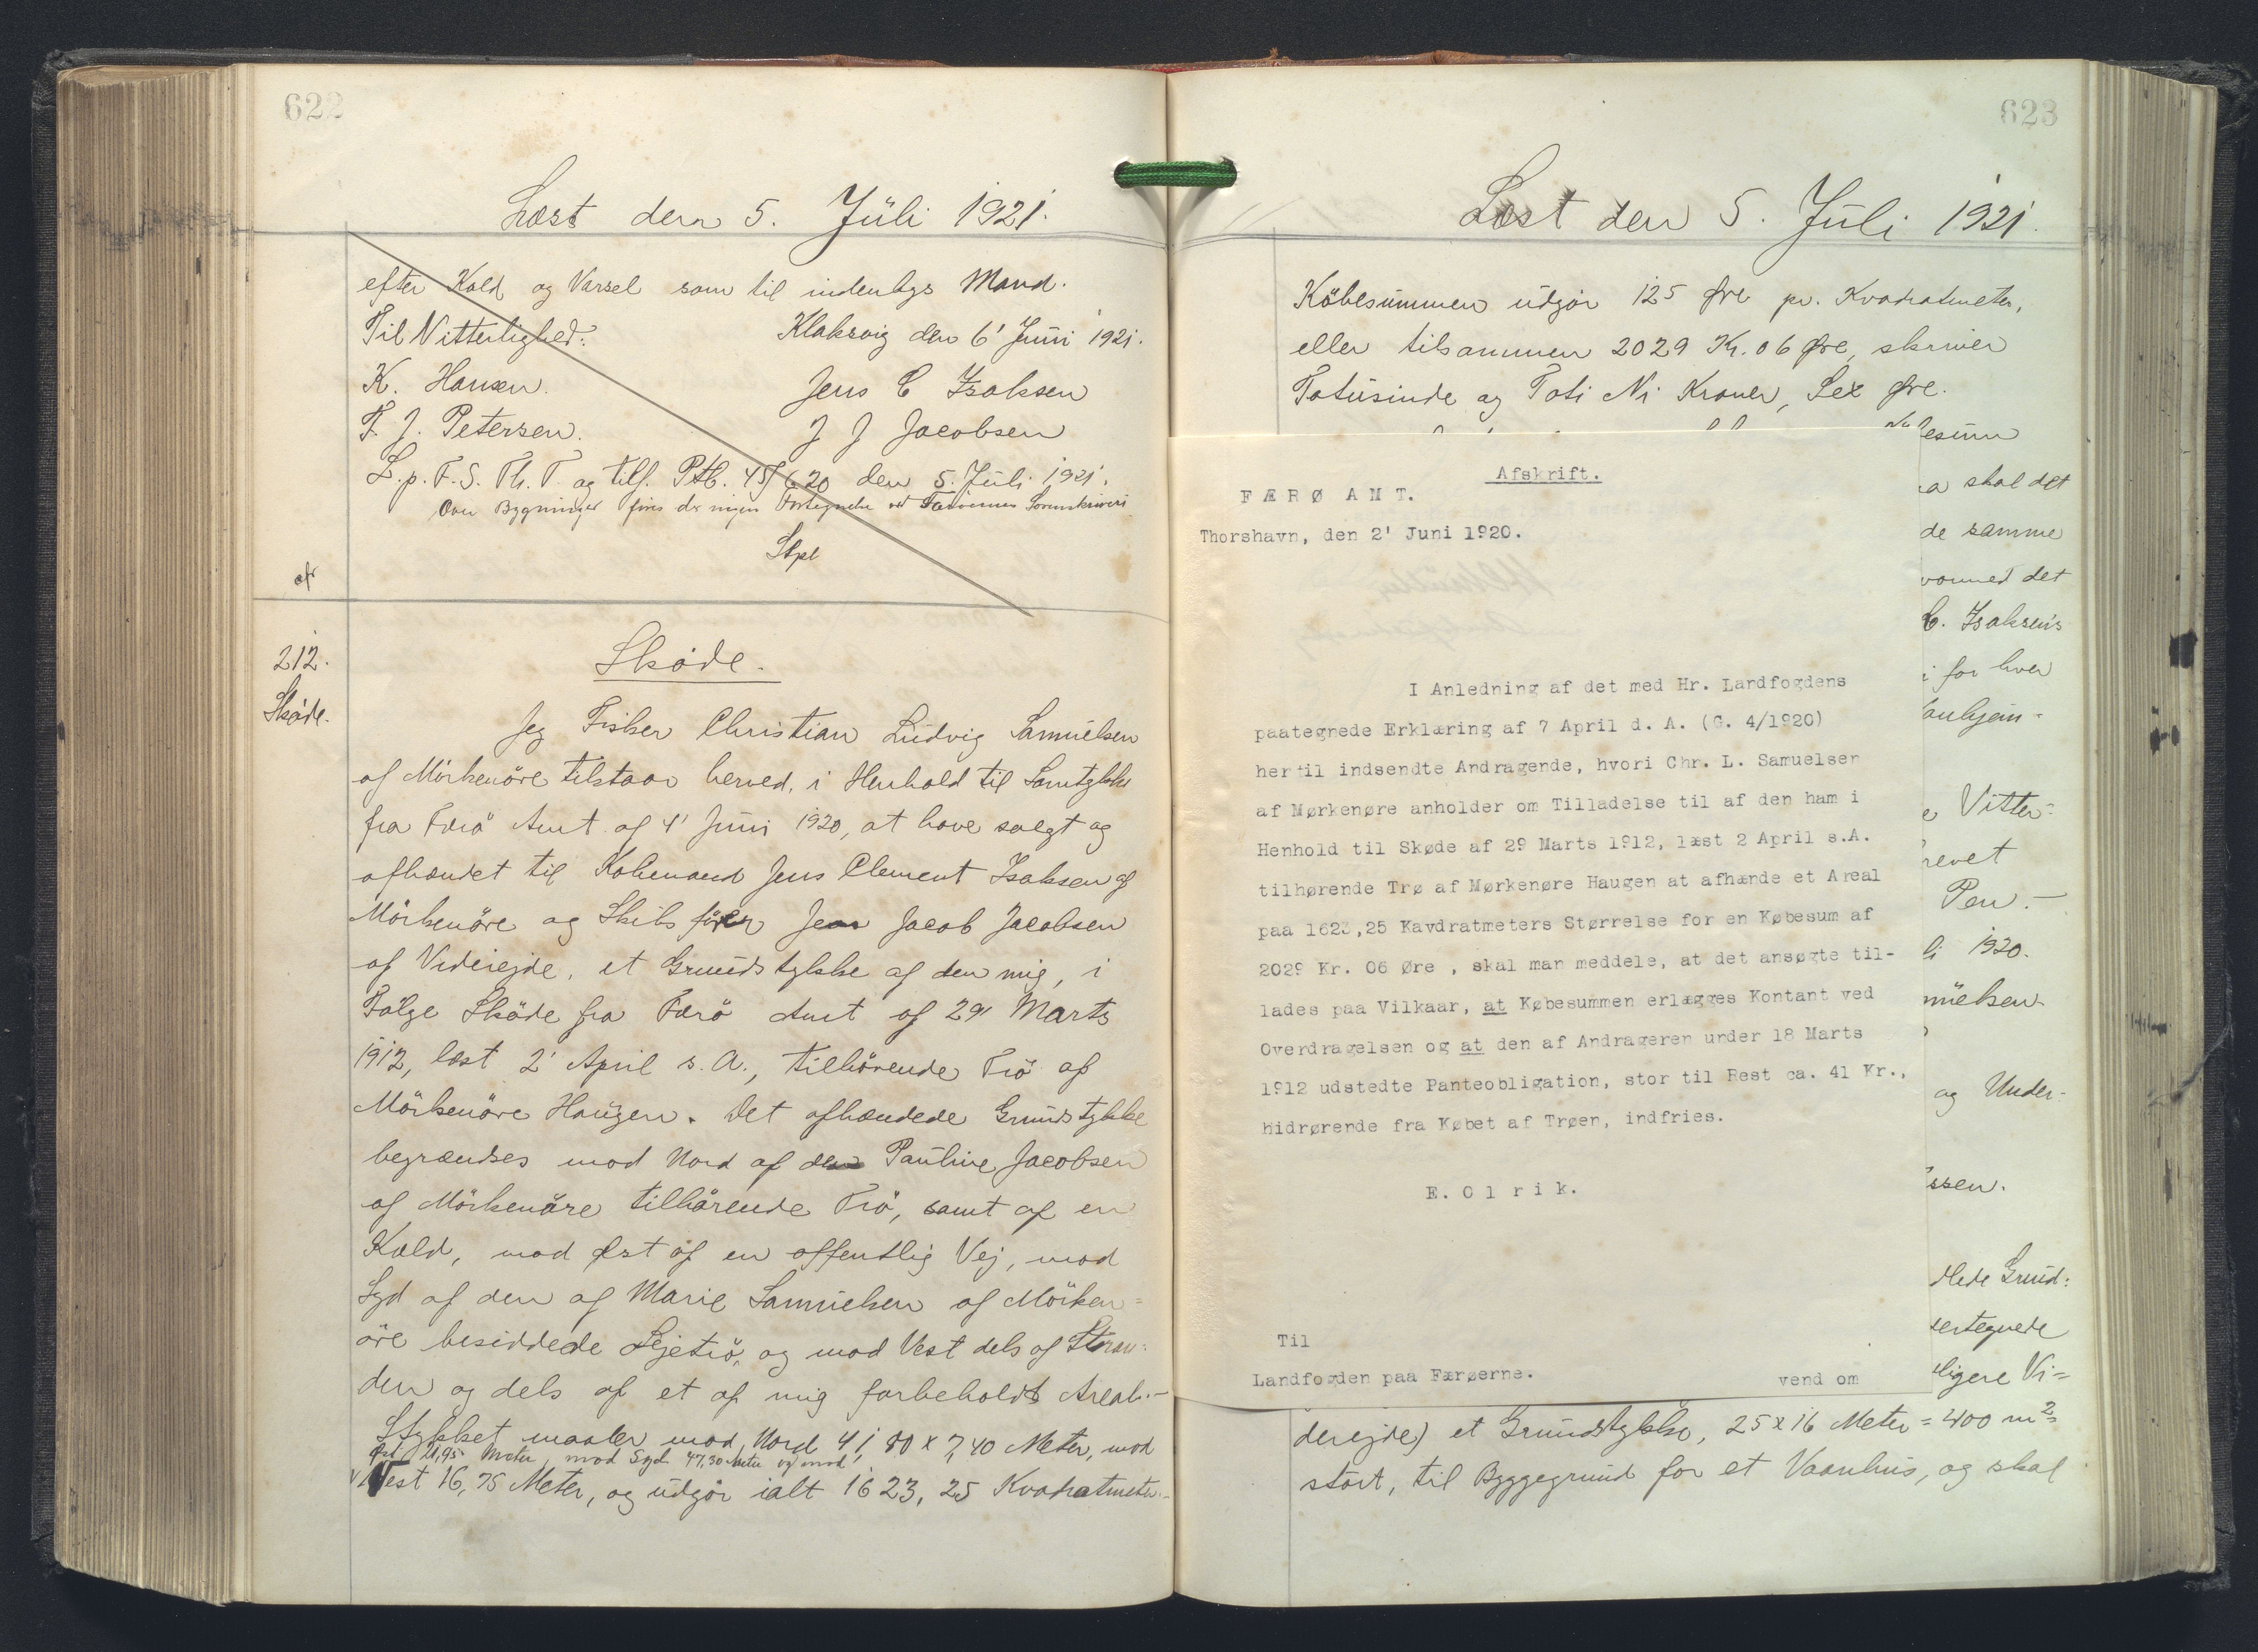 622
Læst den 5. Júli 1921.
efter Kald og Varsel som til indenbys Mand.
Til Vitterlighed: Klaksvig den 6' Júni 1921.
K. Hansen. Jens C Isaksen
F. J. Petersen. J J Jacobsen
L. p. F. S. Th. T og tilf. Ptb. 45/620 den 5. Júli 1921.
Over Bygninger fins der ingen Fortegnelse ved Færøernes Sorenskriveri
Stpl
af
212.
Skøde.
Skøde.
Jeg Fisker Christian Lúdvig Samúelsen
af Mörkenöre tilstaar herved, i Henhold til Samtykke
fra Færö Amt af 4' Júni 1920, at have solgt og
afhændet til Købmand Jens Clement Isaksen af
Mörkenöre og Skibsfører Jens Jacob Jacobsen
af Viderejde, et Grúndstykke af den mig, i
Følge Skøde fra Færö Amt af 29' Marts
1912, læst 2' April s. A., tilhörende Trö af
Mörkenöre Haúgen. Det afhændede Grúndstykke
begrændses mod Nord af den Paúline Jacobsen
af Mörkenöre tilhörende Trö, samt af en
Kæld, mod Øst af en offentlig Vej, mod
Syd af den af Marie Samúelsen af Mörken=
öre besiddede Lejetrö, og mod Vest dels af Stran=
den og dels af et af mig forbeholdt Areal.-
Stykket maaler mod Nord 41,80 x 7,40 Meter, mod
Øst 21,95 Meter, mod Syd 47,30 Meter og mod
Vest 16,75 Meter, og údgør ialt 1623,25 Kvadratmeter.-
623
Læst den 5. Júli 1921.
Købesúmmen údgør 125 Øre pr. Kvadratmeter,
eller tilsammen 2029 Kr. 06 Øre, skriver
Totúsinde og Toti Ni Kroner, Sex Øre.
Afskrift.
FÆRØ AMT.
Thorshavn, den 2' Juni 1920.
I Anledning af det med Hr. Landfogdens
paategnede Erklæring af 7 April d. A. (G. 4/1920)
hertil indsendte Andragende, hvori Chr. L. Samuelsen
af Mørkenøre anholder om Tilladelse til af den ham i
Henhold til Skøde af 29 Marts 1912, læst 2 April s.A.
tilhørende Trø af Mørkenøre Haugen at afhænde et Areal
paa 1623,25 Kavdratmeters Størrelse for en Købesum af
2029 Kr. 06 Øre , skal man meddele, at det ansøgte til-
lades paa Vilkaar, at Købesummen erlægges Kontant ved
Overdragelsen og at den af Andrageren under 18 Marts
1912 udstedte Panteobligation, stor til Rest ca. 41 Kr.,
hidrørende fra Købet af Trøen, indfries.
E. Olrik.
Til
Landfogden paa Færøerne.
vend om
esúm
a skal det
de samme
vormed det
C. Isaksen's
i for hver
Vitter=
revet
Pen.-
li 1920.
múelsen
og Under=
ssen.
dlede Grúnd=
dertegnede
ligere Vi=
derejde) et Grúndstykke, 25 x 16 Meter = 400 m²
stórt, til Byggegrúnd for et Vaanhús, og skal